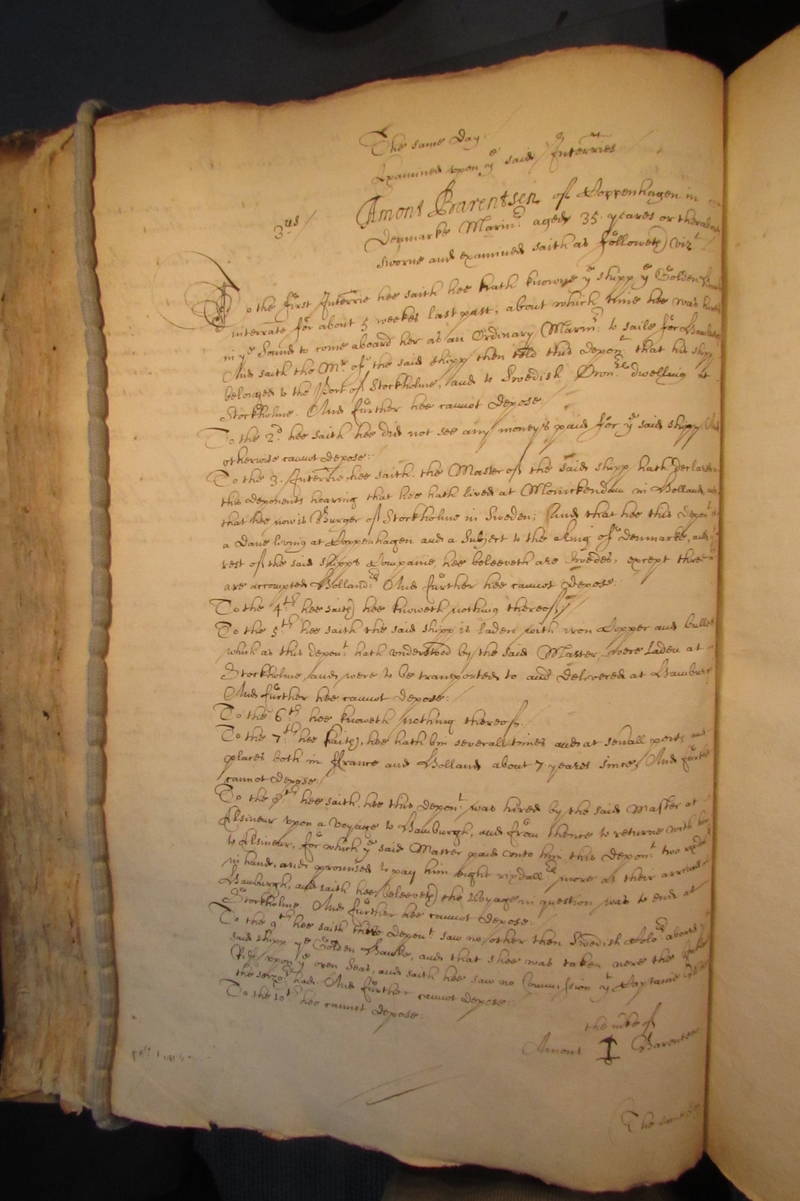 The same day
Examined upon ye said Interries
3us/ Amont Barentsen of Coppenhagen in
Denmarke Marinr aged 35 yeares or thereabouts
sworne and examined saith as followeth vizt
To the first Interrie hee saith hee hath knowne ye shipp ye Golden
interrate for about 5 weekes last past, about which time hee was hired
in ye Sound to come aboard her as an Ordinary Marinr to saile for Hamburgh
And saith the Mr of the said shipp then told this Depont that his shipp
belonged to the Port of Stockholme, and to Swedish dwelling at
Stockholme. And further hee cannot depose
To the 2d hee saith hee did not see any moneys paid for ye said shipp And
otherwise cannot depose.
To the 3. Interrie hee saith the Master of the said shipp hath declared in
this deponents hearing that hee hath lived at Monickendam in Holland and
that hee now is Burger of Stockholme in Sweden; And that hee this Depont is
a Dane living at Coppenhagen and a Subject to the King of Denmarke, and ye
rest of the said shipps Companie hee beleeveth are Swedes, except three
are accompted Hollandrs And further hee cannot depose.
To the 4th hee saith hee knoweth nothing thereof
To the 5th hee saith the said shipp is laden with iron Copper and bullets
which as this deponrt hath understood by the said Master were laden at
Stockholme and were to be transported to and delivered at Hamburgh
And further hee cannot depose.
To the 6th hee knoweth nothing thereof.
To the 7th hee saith, hee hath bin severall times and at severall ports and
places both in France and Holland about 7 yeares since, And further
cannot depose.
To the 8th hee saith, hee this Deponrt was hired by the said Master at
Elsineur upon a Voyage to Hamburgh, and from thence to returne with him
to Elsineur, for which ye said Master paid unto him this Deponrt two
in hand, and promised to pay him eight ripdallrs more at their arrivall
Hamburgh, and saith hee beleeveth the Voyage in question was to end at
Stockholme. And further hee cannot depose.
To the 9th hee saith this Deponrt saw no other then Swedish Colos aboard
said shipp ye Golden Hawke, and that shee was taken nere the
upon ye open Seas, and saith hee saw no Commission ye Captaine
the seizors had. And further cannot depose.
To the 10th hee cannot depose.
the mke of
Amont Barentsen
The same